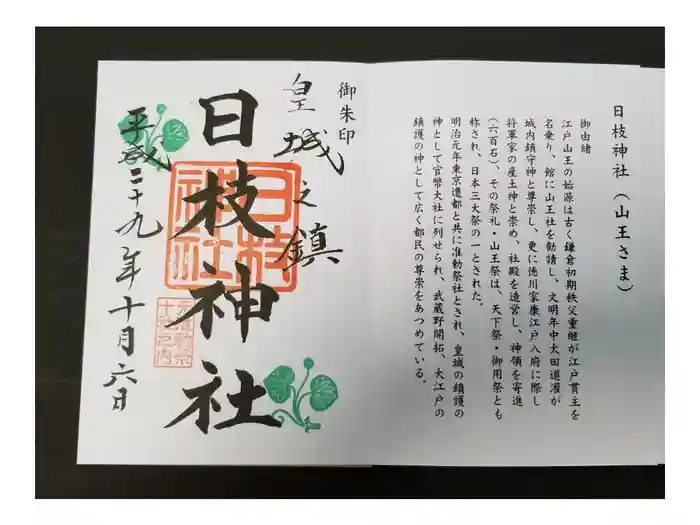 日枝神社(山王さま)
御由緒
江戸山王の始源は古く鎌倉初期秩父重継が江戸貫主を
名乗り、館に山王社を勧請し、文明年中太田道灌が
城内鎮守神と尊崇し、更に徳川家康江戸入府に際し
将軍家の産土神と崇め、社殿を造営し、神領を寄進
(六百石)、その祭礼・山王祭は、天下祭・御用祭とも
称され、日本三大祭の一とされた。
明治元年東京遷都と共に准勅祭社とされ、皇城の鎮護の
神として官幣大社に列せられ、武蔵野開拓、大江戸の
鎮護の神として広く都民の尊崇をあつめている。
御朱印
皇城之鎮
日枝神社
日枝神社
元准勅祭
十社之内
平成二十九年十月六日